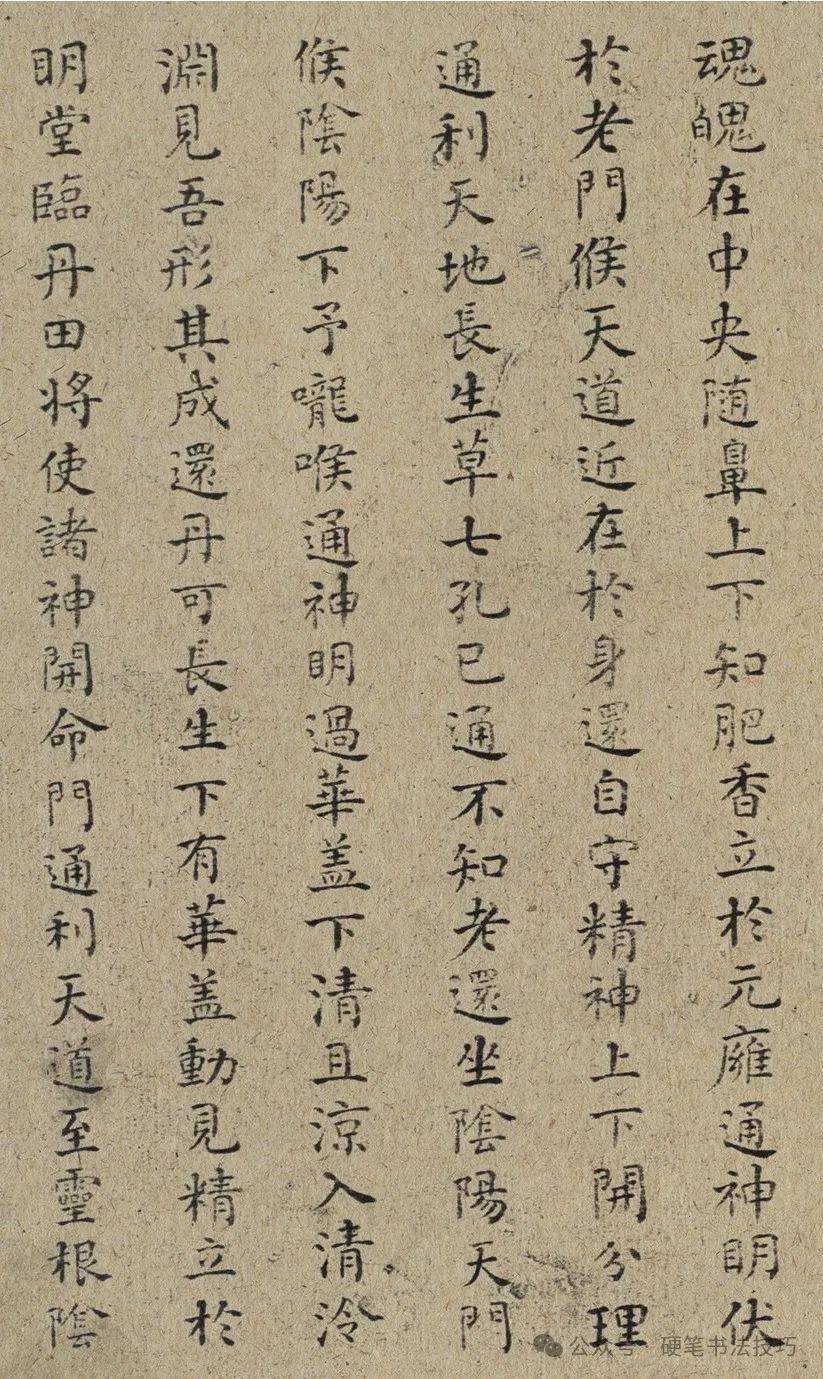 魂魄在中央随鼻上下知肥香立於元廱通神明伏
於老門候天道近在於身還自守精神上下開分理
通利天地長生草七孔已通不知老還坐陰陽天門
候陰陽下予嚨喉通神明過華盖下清且涼入清泠
淵見吾形其成還丹可長生下有華盖動見精立於
明堂臨丹田将使諸神開命門通利天道至靈根陰
公众号·硬笔书法技巧